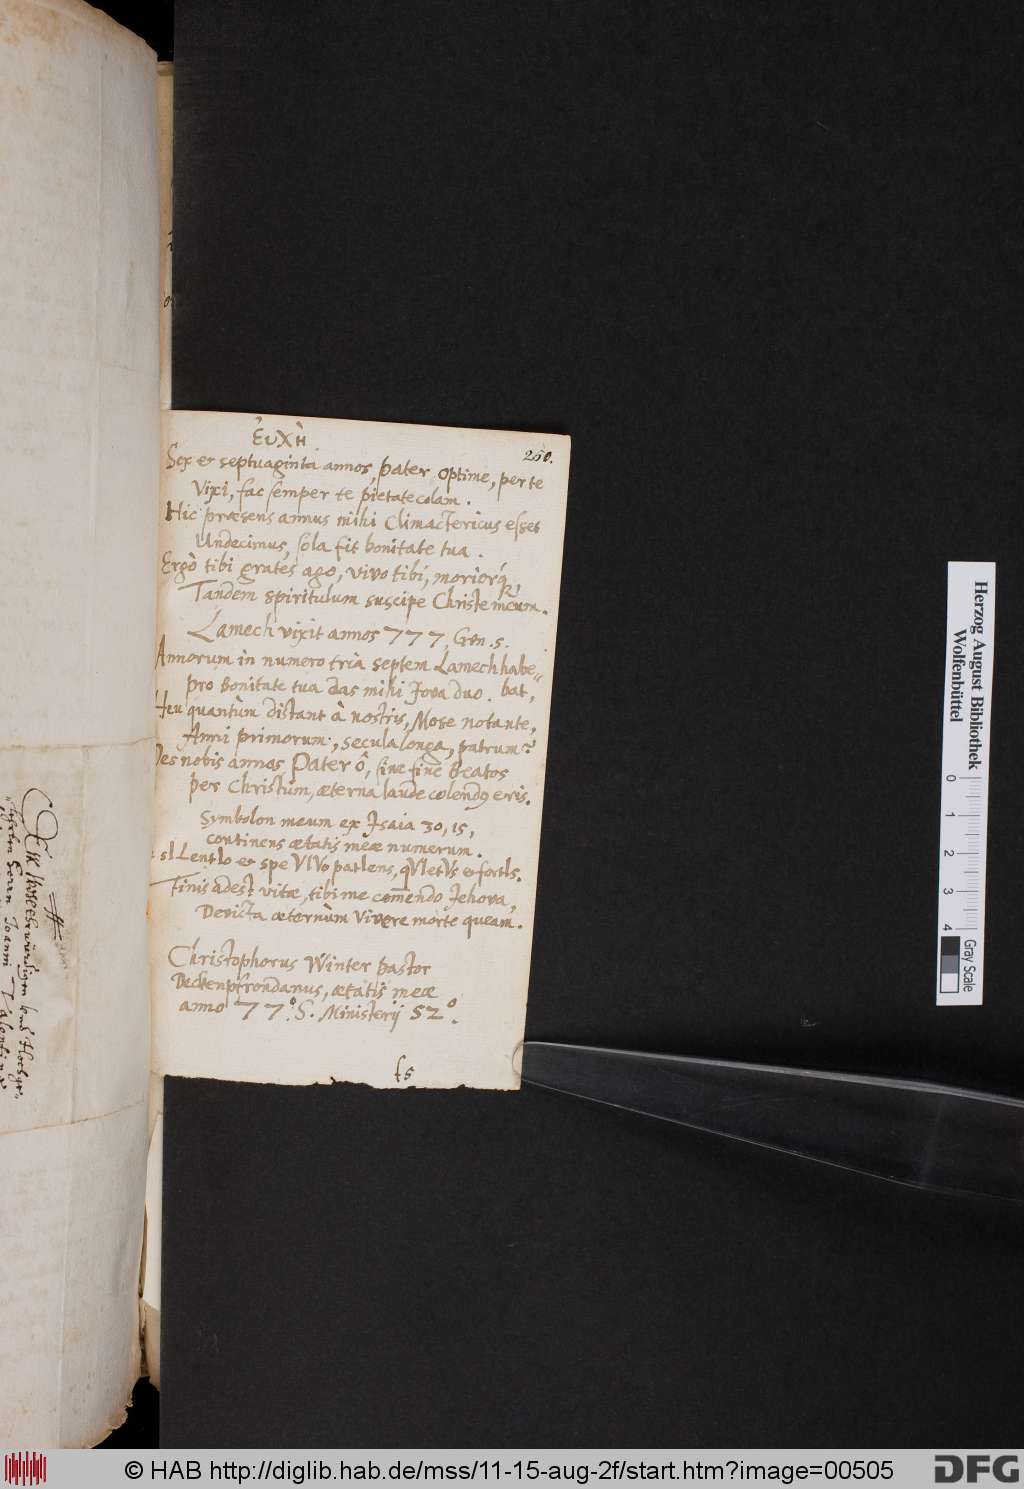 ἐυχὴ
260.
Sex et septuaginta annos, pater optime, per te
Vixi, fac semper te pietate colam.
Hic præsens annus mihi Climactericus esset
Undecimus, sola fit bonitate tua.
Ergò tibi grates ago, vivo tibi, moriorq́,
Tandem spiritulum suscipe Christe meum.
Lamech vixit annos 777, Gen. 5.
Annorum in numero tria septem Lamech habe„
pro bonitate tua das mihi Jova duo. bat,
Heu quantùm distant à nostris, Mose notante,
Anni primorum, secula longa, patrum?
Des nobis annos Pater ô, sine fine Beatos
per Christum, æterna laude colendus eris.
Symbolon meum ex Isaia 30, 15,
continens ætatis meæ numerum.
sILentIo et spe VIVo patIens, qVIetVs et fortIs.
Finis adest vitæ, tibi me com̄endo Jehova,
Devicta æternùm vivere morte queam.
Christophorus Winter pastor
Deckenpfrondanus, ætatis meæ
anno 77.° S. Ministerij 52.°
fs
Herzog August Bibliothek
Wolfenbüttel
0 1 2 3 4
Gray Scale
© HAB http://diglib.hab.de/mss/11-15-aug-2f/start.htm?image=00505
DFG